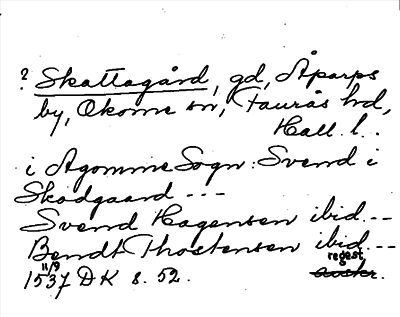 ? Skattagård, gd, Åparps
by, Okome sn, Faurås hd,
Hall. l.
i Agomme Sogn: Svend i
Skadgaard ---
Svend Hagensen ibid. --
Bendt Thostensen ibid. --
11/9 regest
1537 DK s. 52. avskr.